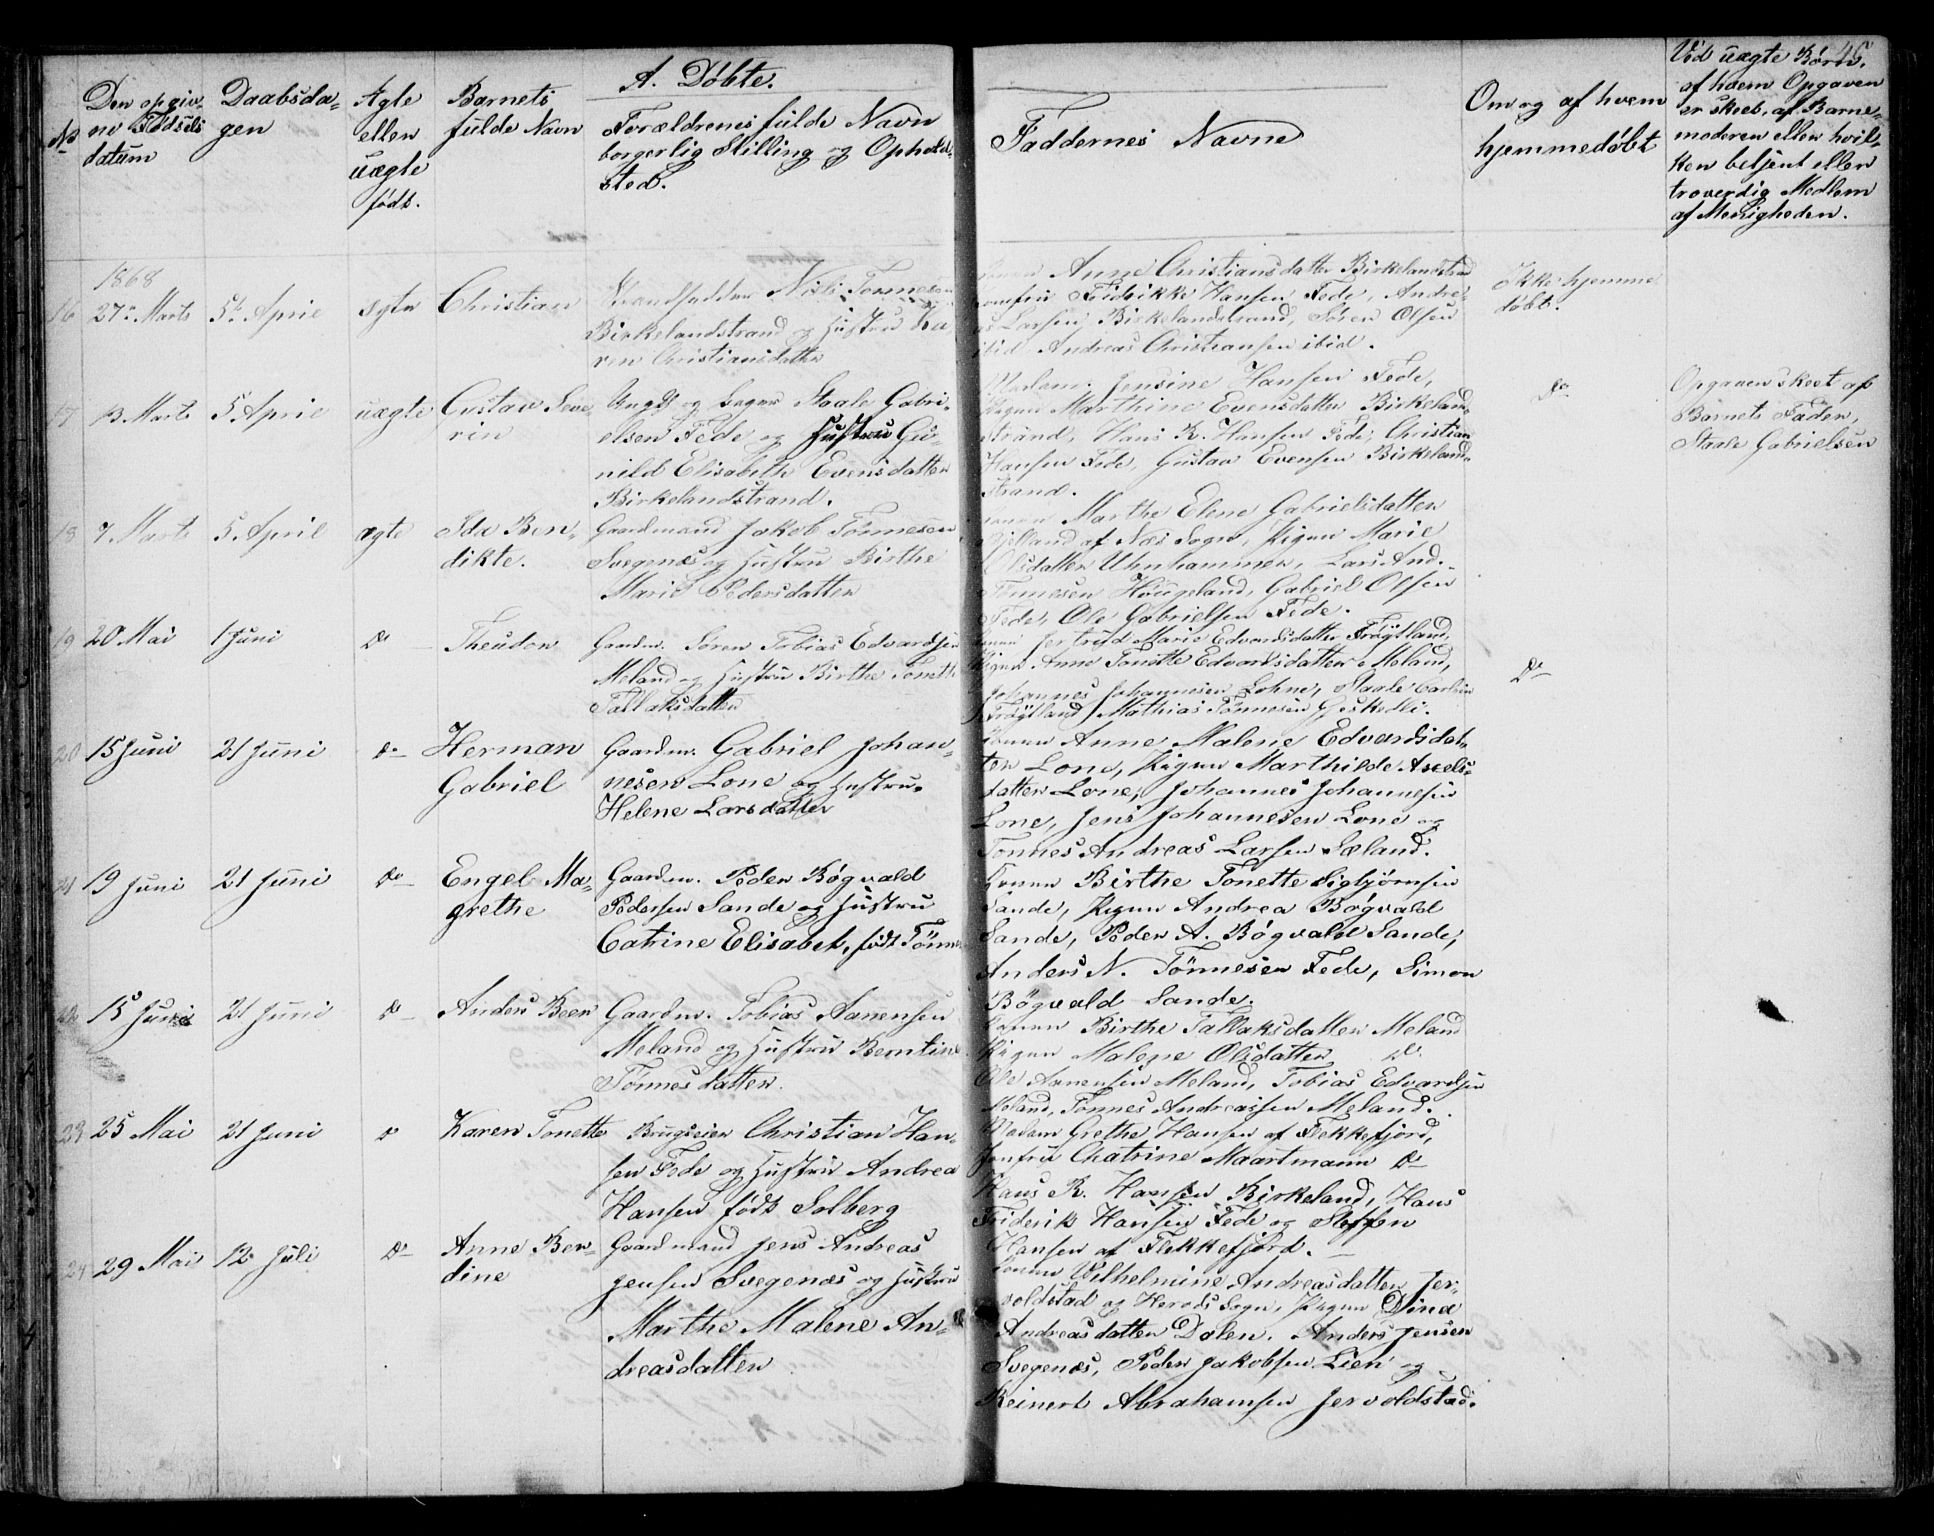 A. Døbte.
46
No
Den opgiv-
ne Fødsels
datum
Daabsda-
gen
Ægte
eller
uægte
født.
Barnets
fulde Navn
Forældrenes fulde Navn
borgerlig Stilling og Opholds-
sted.
Faddernes Navne
Om og af hvem
hjemmedøbt
Ved uægte Børn,
af hvem Opgaven
er skeet, af Barne-
moderen eller hvil-
ken betjent eller
troverdig Medlem
af Menigheden.
1868
16
27de Marts
5te April
ægte
Christian
Strandsidder Niels Tønnesen
Birkelandstrand og Hustru Ka
ren Christiansdatter
Anne Christiansdatter Birkelandstrand
Jomfru Fredrikke Hansen Fede, Andre-
as Larsen Birkelandstrand, Søren Olsen
ibid Andreas Christiansen ibid.
Ikke hjemme
døbt.
17
13 Marts
5 April
uægte
Gustav Seve
rin
Ungk og Søger Staale Gabri-
elsen Fede og Hustru Gu-
nild Elisabeth Evensdatter
Birkelandstrand.
Madam Jensine Hansen Fede,
Pigen Marthine Evensdatter Birkeland-
strand, Hans R. Hansen Fede, Christian
Hansen Fede, Gustav Evensen Birkeland-
strand.
Do
Opgaven skeet af
Barnets Fader,
Staale Gabrielsen
18
7 Marts
5 April
ægte
Ida Ben-
dikte.
Gaardmand Jakob Tønnesen
Svegenæs og Hustru Birthe
Marie Pedersdatter
Konen Marthe Elene Gabrielsdatter
af Næs Sogn, Pigen Marie
Olsdatter Uhnhammer, Lars And.
Tønnesen Høugeland, Gabriel Olsen
Fede, Ole Gabrielsen Fede.
19
20 Mai
1 Juni
Do
Theodor
Gaardm. Søren Tobias Edvardsen
Meland og Hustru Birthe Tonette
Tallaksdatter
Konen Jertrud Marie Edvardsdatter Frøytland,
Pigen Anne Tonette Edvardsdatter Meland,
Johannes Johannesen Lohne, Staale Carlsen
Frøytland, Mathias Tønnesen
Do
20
15 Juni
21 Juni
Do
Herman
Gabriel
Gaardm. Gabriel Johan-
nesen Lone og Hustru
Helene Larsdatter
Konen Anne Malene Edvardsdat-
ter Lone, Pigen Marthilde Axels-
datter Lone, Johannes Johannesen
Lone, Jens Johannesen Lone og
Tønnes Andreas Larsen Sæland.
21
19 Juni
21 Juni
Do
Engel Ma-
grethe
Gaardm. Peder Bøgvald
Pedersen Sande og Hustru
Catrine Elisabet, født Tønnes
Konen Birthe Tonette Sigbjørnsen
Sande, Pigen Andrea Bøgvald
Sande, Peder A. Bøgvald Sande,
Anders N. Tønnesen Fede, Simon
Bøgvald Sande.
22
15 Juni
21 Juni
Do
Anders Beer
Gaardm. Tobias Aanensen
Meland og Hustru Berntine
Tønnesdatter.
Konen Birthe Tallaksdatter Meland
Pigen Malene Olsdatter Do
Ole Aanensen Meland, Tobias Edvardsen
Meland, Tønnes Andreassen Meland.
23
25 Mai
21 Juni
Do
Karen Tonette
Brugseier Christian Han-
sen Fede og Hustru Andrea
Hansen født Solberg
Madam Grethe Hansen af Flekkefjord,
Jomfru Chatrine Maartmann Do
Hans R. Hansen Birkeland, Hans
Friderik Hansen Fede og Steffen
Hansen af Flekkefjord.
24
29 Mai
12 Juli
Do
Anne Ber-
dine
Gaardmand Jens Andreas
Jensen Svegenæs og Hustru
Marthe Malene An-
dreasdatter
Konen Wilhelmine Andreasdatter Jer-
voldstad og Herods Sogn, Pigen Dina
Andreasdatter Dalen. Anders Jensen
Svegenæs, Peder Jakobsen Lien og
Reinert Abrahamsen Jervoldstad.